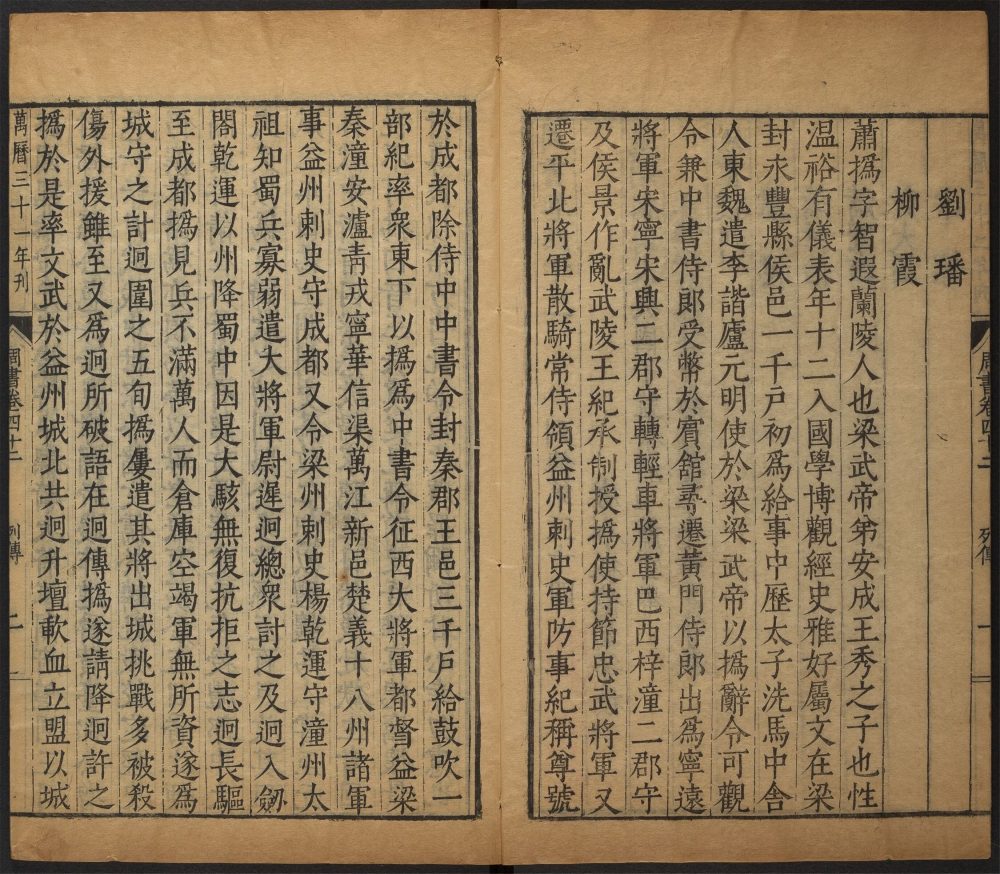 周書卷四十二 列傳 一
劉璠
柳霞
蕭撝字智遐蘭陵人也梁武帝弟安成王秀之子也性
温裕有儀表年十二入國學博觀經史雅好屬文在梁
封永豐縣侯邑一千戶初爲給事中歷太子洗馬中舍
人東魏遣李諧盧元明使於梁梁武帝以撝辭令可觀
令兼中書侍郎受幣於賓館尋遷黃門侍郎出爲寧遠
將軍宋寧宋興二郡守轉輕車將軍巴西梓潼二郡守
及侯景作亂武陵王紀承制授撝使持節忠武將軍又
遷平北將軍散騎常侍領益州刺史軍防事紀稱尊號
於成都除侍中中書令封秦郡王邑三千戶給鼓吹一
部紀率衆東下以撝爲中書令征西大將軍都督益梁
秦潼安瀘青戎寧華信渠萬江新邑楚義十八州諸軍
事益州刺史守成都又令梁州刺史楊乾運守潼州太
祖知蜀兵寡弱遣大將軍尉遲迥總衆討之及迥入劒
閣乾運以州降蜀中因是大駭無復抗拒之志迥長驅
至成都撝見兵不滿萬人而倉庫空竭軍無所資遂爲
城守之計迥圍之五旬撝屢遣其將出城挑戰多被殺
傷外援雖至又爲迥所破語在迥傳撝遂請降迥許之
撝於是率文武於益州城北共迥升壇歃血立盟以城
萬曆三十一年刊 周書卷四十二 列傳 二